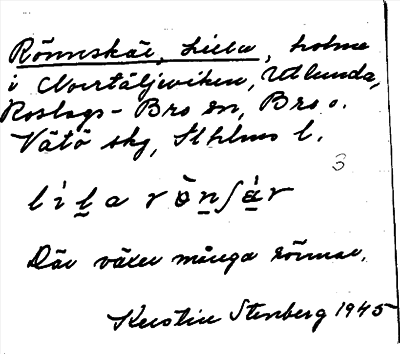 Rönnskär, Lilla, holme
i Norrtäljeviken, Utlunda,
Roslags-Bro sn, Bro o.
Vätö skg, Sthlms l.
3
li̍l̲a rö̀n̲ʃá̲r
Där växer många rönnar.
Kerstin Stenberg 1945